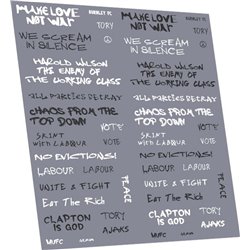 MAKE LOVE
NOT WAR
BURNLEY FC
TORY
WE SCREAM
IN SILENCE
HAROLD WILSON
THE ENEMY OF
THE WORKING CLASS
ALL PARTIES BETRAY
CHAOS FROM THE
TOP DOWN
VOTE
SKINT
with LABOUR
NO EVICTIONS!
LABOUR
UNITE & FIGHT
Eat The Rich
PEACE
CLAPTON
IS GOD
TORY
AJAKS
MUFC
MAKE LOVE
NOT WAR
BURNLEY FC
TORY
WE SCREAM
IN SILENCE
HAROLD WILSON
THE ENEMY OF
THE WORKING CLASS
ALL PARTIES BETRAY
CHAOS FROM THE
TOP DOWN
VOTE
SKINT
with LABOUR
NO EVICTIONS!
LABOUR
UNITE & FIGHT
Eat The Rich
PEACE
CLAPTON
IS GOD
TORY
AJAKS
MUFC